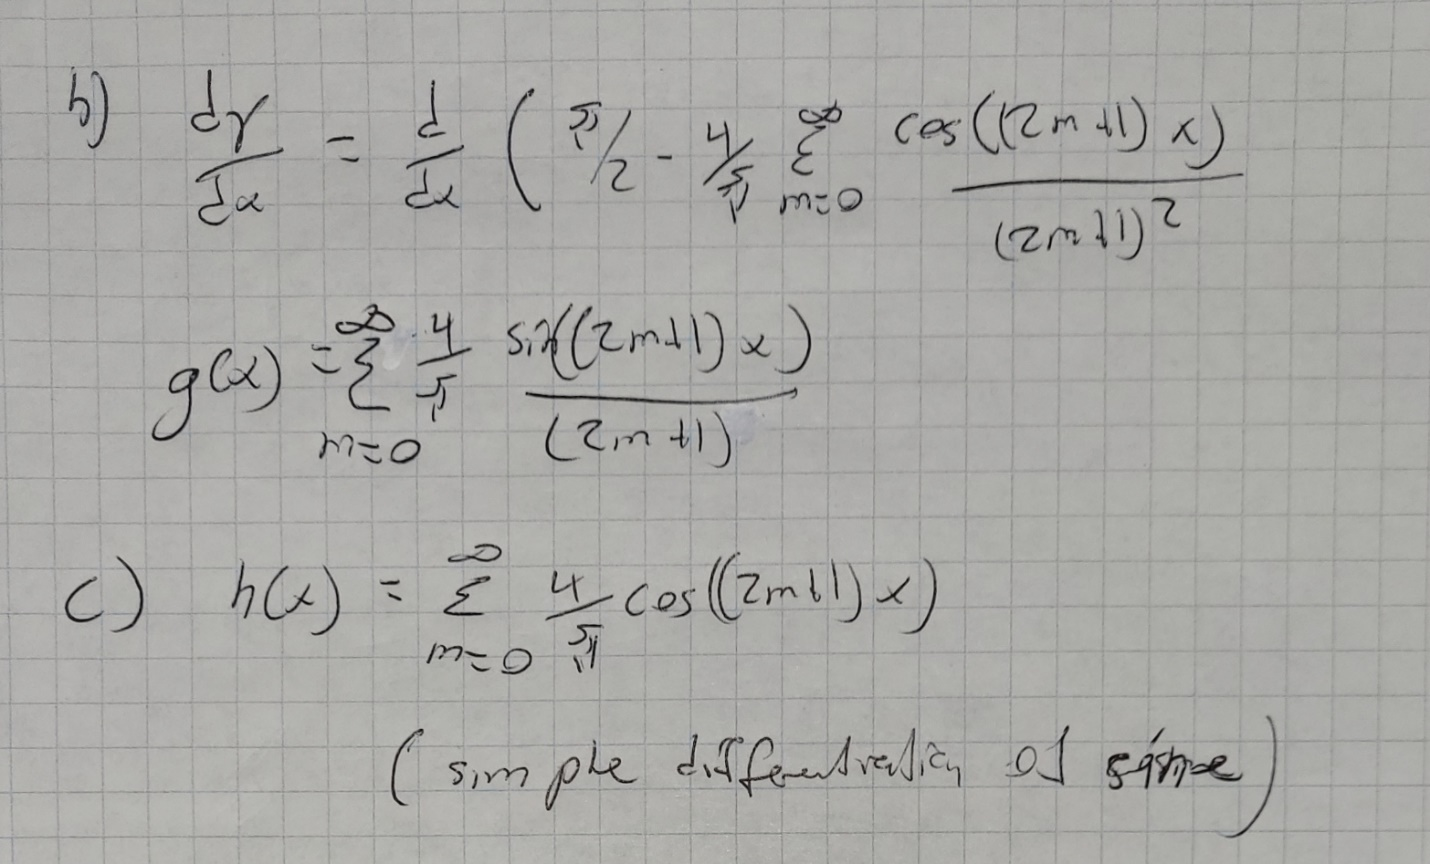 b) dγ/dx = d/dx ( π/2 - 4/π ∞∑m=0 cos((2m+1)x)/(2m+1)²
g(x) = ∞∑m=0 4/π sin((2m+1)x)/(2m+1)
c) h(x) = ∞∑m=0 4/π cos((2m+1)x)
(simple differentiation of sine)